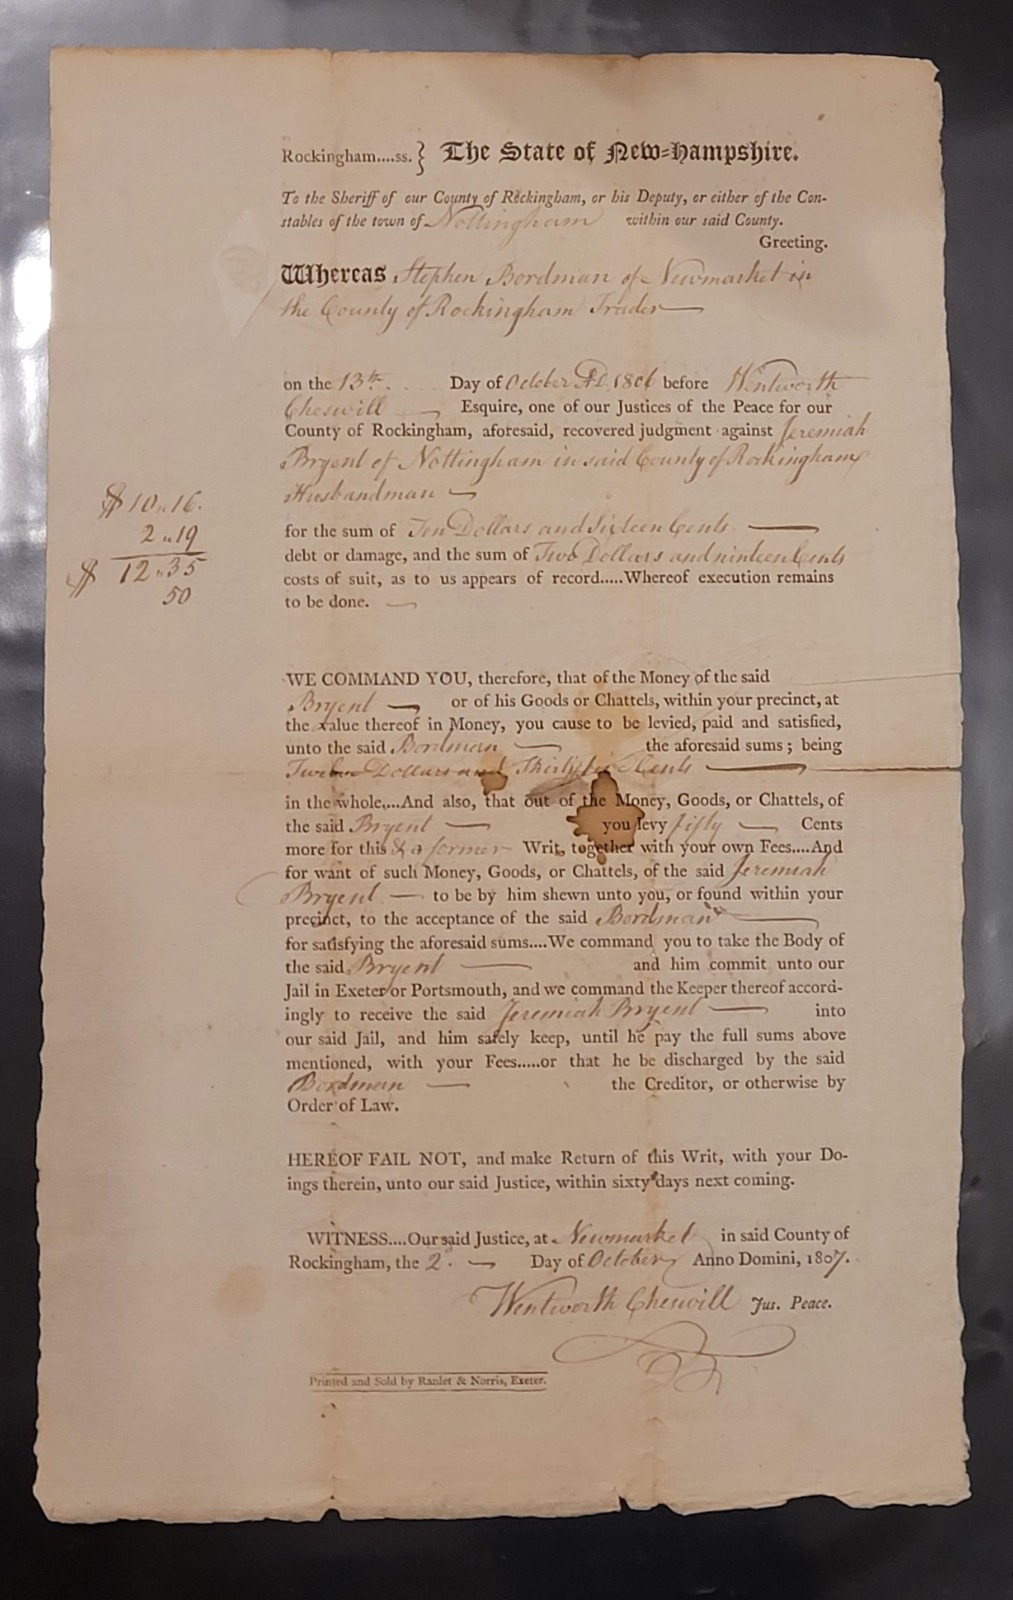 Rockingham....ss. } The State of New-Hampshire.
To the Sheriff of our County of Rockingham, or his Deputy, or either of the Con-
stables of the town of Nottingham within our said County.
Greeting.
Whereas Stephen Bordman of Newmarket in
the County of Rockingham Trader
on the 13th. Day of October AD. 1806 before Wentworth
Cheswill Esquire, one of our Justices of the Peace for our
County of Rockingham, aforesaid, recovered judgment against Jeremiah
Bryent of Nottingham in said County of Rockingham
Husbandman
$10,,16.
for the sum of Ten Dollars and Sixteen Cents
2,,19
debt or damage, and the sum of Two Dollars and ninteen Cents
$ 12,,35
costs of suit, as to us appears of record.....Whereof execution remains
50
to be done.
WE COMMAND YOU, therefore, that of the Money of the said
Bryent or of his Goods or Chattels, within your precinct, at
the value thereof in Money, you cause to be levied, paid and satisfied,
unto the said Bordman the aforesaid sums; being
Twelve Dollars and Thirty five Cents
in the whole,...And also, that out of the Money, Goods, or Chattels, of
the said Bryent you levy fifty Cents
more for this & a former Writ, together with your own Fees....And
for want of such Money, Goods, or Chattels, of the said Jeremiah
Bryent to be by him shewn unto you, or found within your
precinct, to the acceptance of the said Bordman
for satisfying the aforesaid sums....We command you to take the Body of
the said Bryent and him commit unto our
Jail in Exeter or Portsmouth, and we command the Keeper thereof accord-
ingly to receive the said Jeremiah Bryent into
our said Jail, and him safely keep, until he pay the full sums above
mentioned, with your Fees.....or that he be discharged by the said
Bordman the Creditor, or otherwise by
Order of Law.
HEREOF FAIL NOT, and make Return of this Writ, with your Do-
ings therein, unto our said Justice, within sixty days next coming.
WITNESS....Our said Justice, at Newmarket in said County of
Rockingham, the 2. Day of October Anno Domini, 1807.
Wentworth Cheswill Jus. Peace.
Printed and Sold by Ranlet & Norris, Exeter.